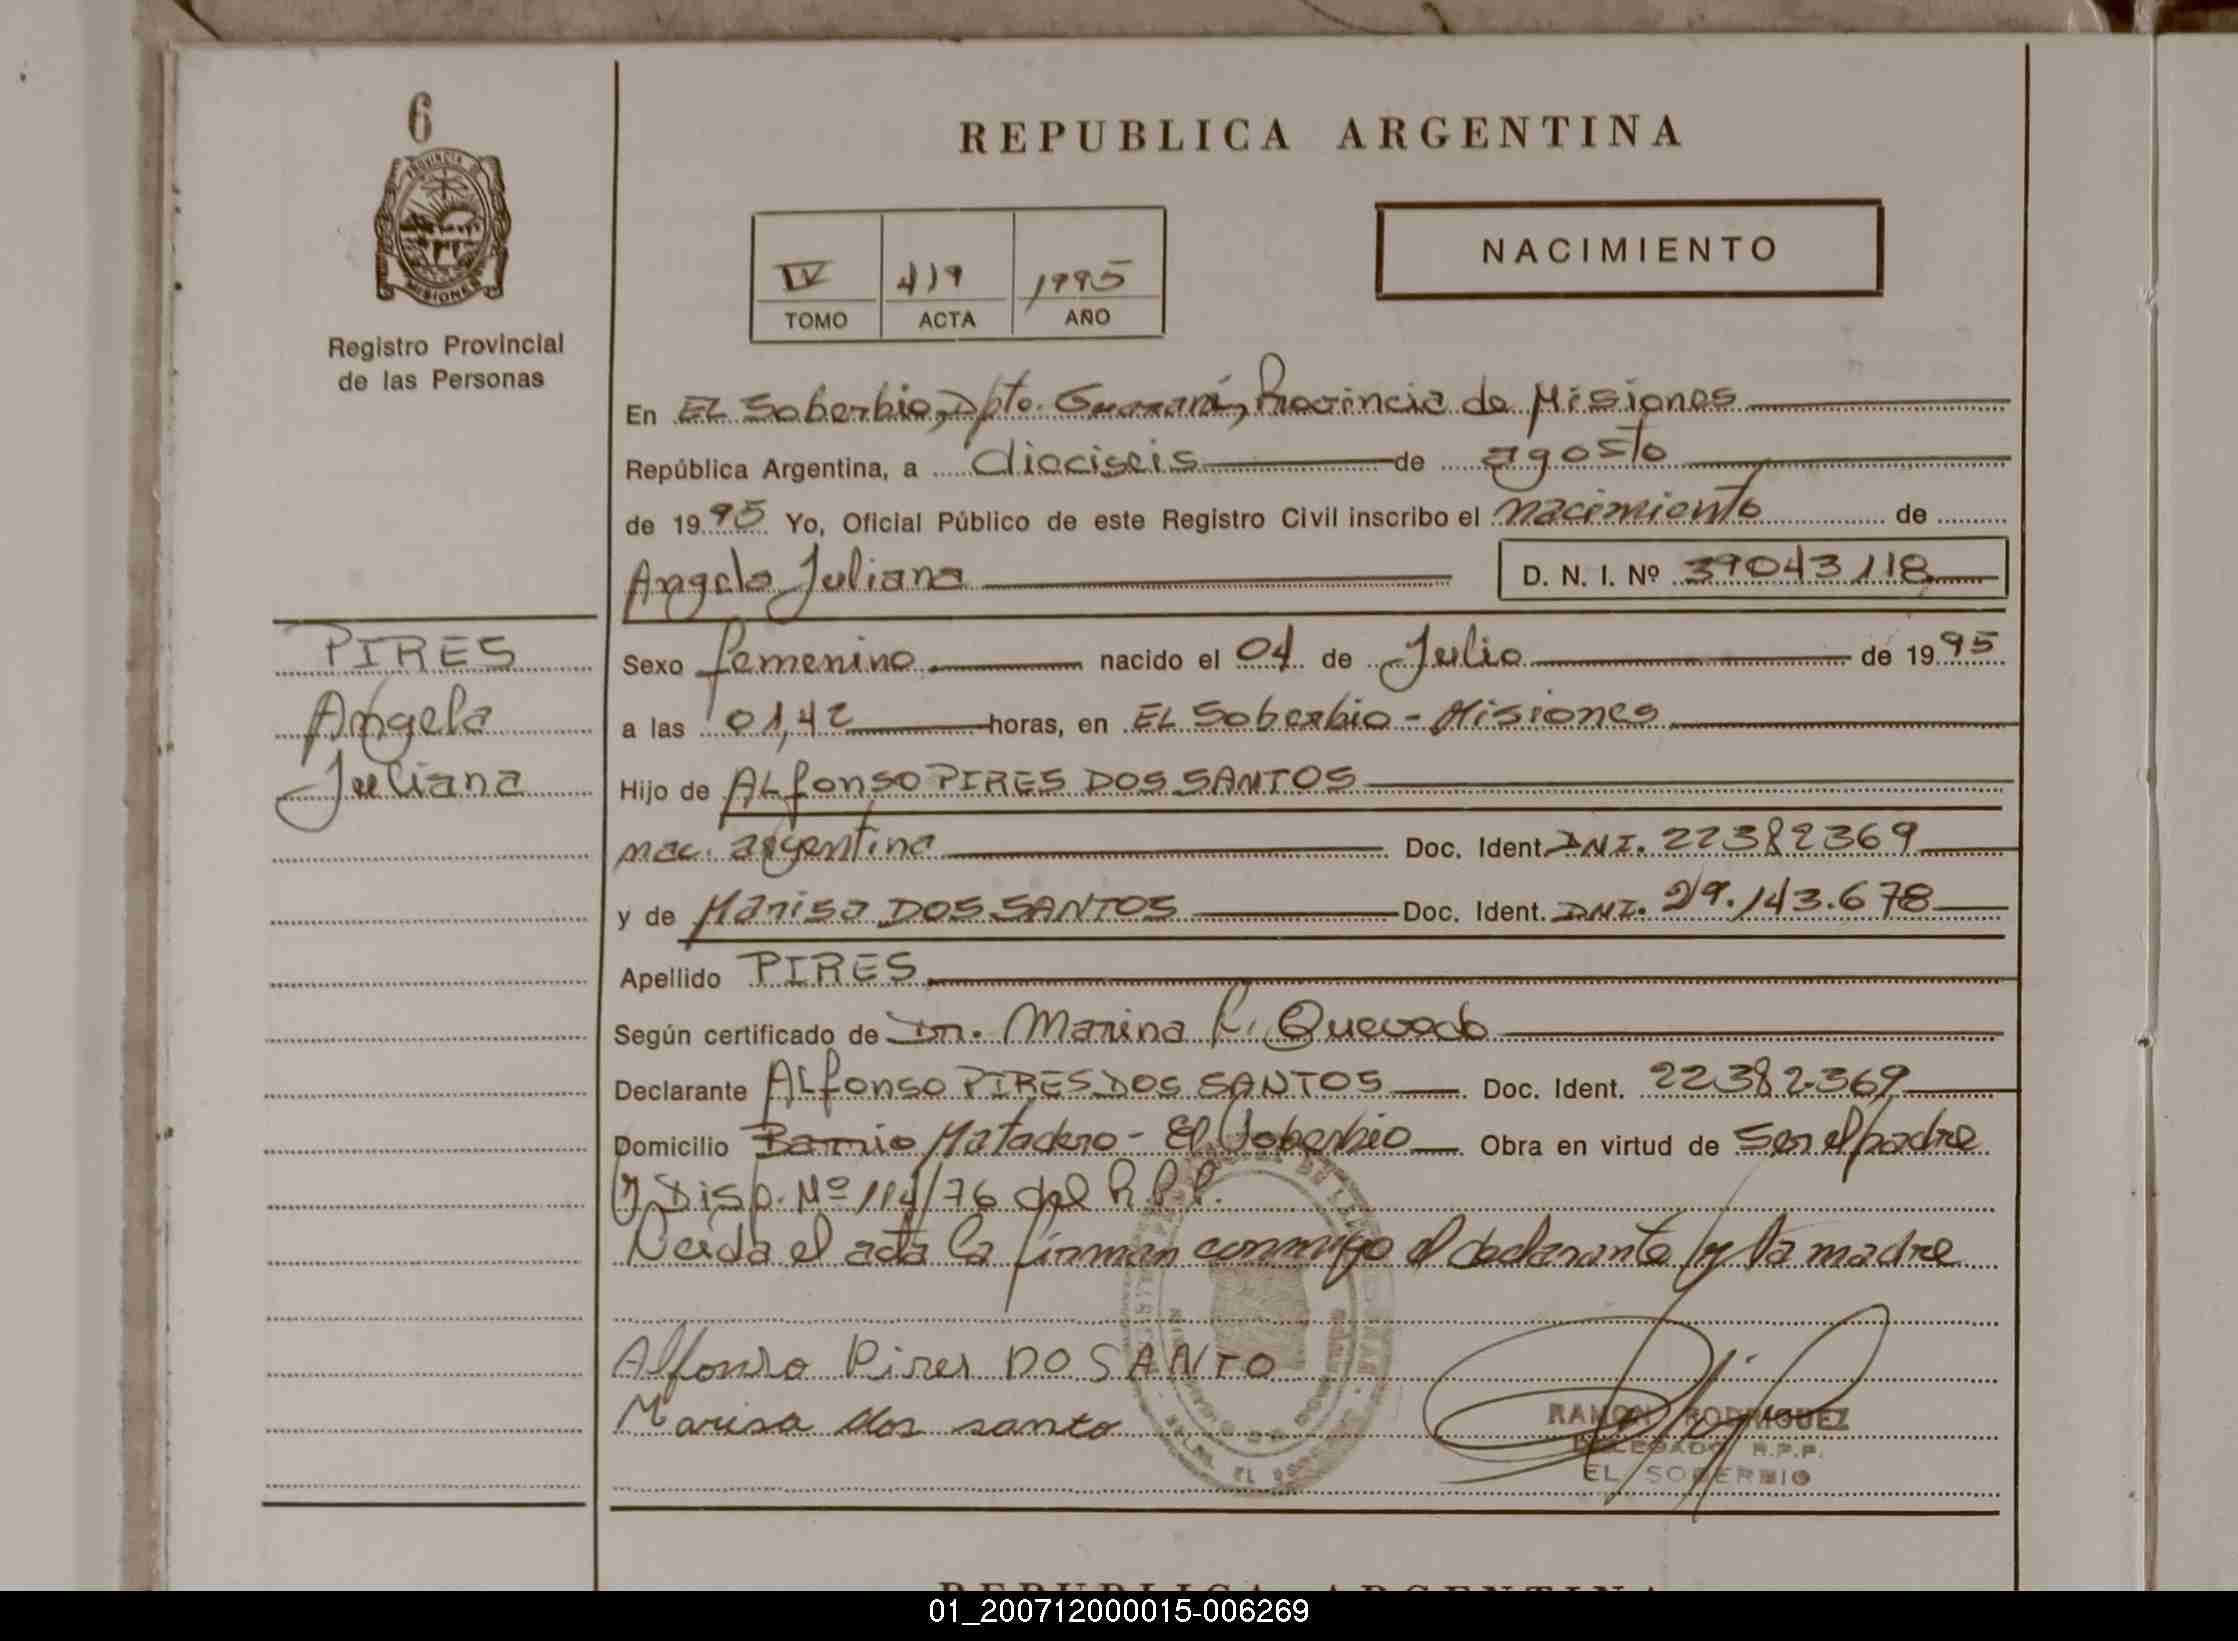 6
PROVINCIA DE
MISIONES
Registro Provincial
de las Personas
REPUBLICA ARGENTINA
NACIMIENTO
IV 419 1995
TOMO ACTA AÑO
En EL Soberbio, Dpto. Guaraní, Provincia de Misiones
República Argentina, a dieciseis de agosto
de 1995 Yo, Oficial Público de este Registro Civil inscribo el nacimiento de
Angela Juliana D. N. I. Nº 39043118
PIRES
Angela
Juliana
Sexo femenino nacido el 04 de Julio de 1995
a las 01,42 horas, en EL Soberbio - Misiones
Hijo de ALfonso PIRES DOS SANTOS
nac. argentina Doc. Ident. DNI. 22382369
y de Marisa DOS SANTOS Doc. Ident. DNI. 29.143.678
Apellido PIRES
Según certificado de Dr. Marina R. Quevedo
Declarante ALfonso PIRES DOS SANTOS Doc. Ident. 22382.369
Domicilio Barrio Matadero - El Soberbio Obra en virtud de ser el padre
y Disp. Nº 114/76 del R.P.P.
Leida el acta la firman conmigo el declarante y la madre
Alfonso Pires DO SANTO
Marisa dos santo
RAMON RODRIGUEZ
DELEGADO R.P.P.
EL SOBERBIO
REPUBLICA ARGENTINA
01_200712000015-006269